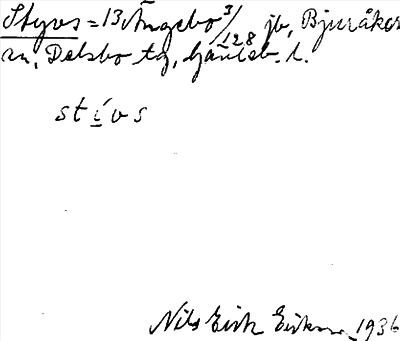 Styvs = 13 Ängebo 3/128 jb, Bjuråker
sn, Delsbo tg, Gävleb. l.
stívs
Nils Erik Erikson 1936